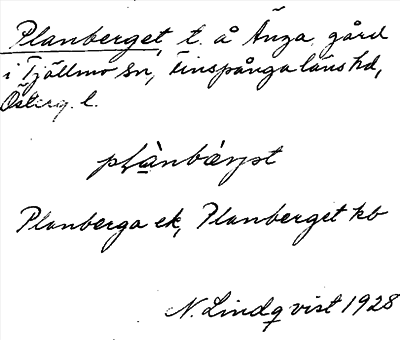 Planberget, t. å Änga, gård
i Tjällmo sn, Finspånga läns hd,
Österg. l.
Planberga ek, Planberget kb
N. Lindqvist 1928